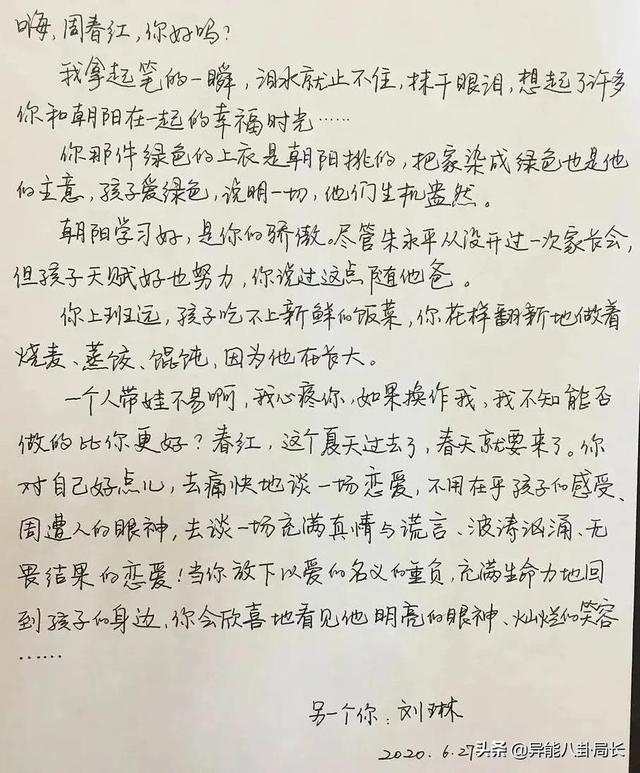 嗨,周春红,你好吗?
我拿起笔的一瞬,泪水就止不住,抹干眼泪,想起了许多
你和朝阳在一起的幸福时光……
你那件绿色的上衣是朝阳挑的,把家染成绿色也是他
的主意,孩子爱绿色,说明一切,他们生机盎然。
朝阳学习好,是你的骄傲。尽管朱永平从没开过一次家长会,
但孩子天赋好也努力,你说过这点随他爸。
你上班远,孩子吃不上新鲜的饭菜,你花样翻新地做着
烧麦、蒸饺、馄饨,因为他在长大。
一个人带娃不易啊,我心疼你,如果换作我,我不知能否
做的比你更好?春红,这个夏天过去了,春天就要来了。你
对自己好点儿,去痛快地谈一场恋爱,不用在乎孩子的感受、
周遭人的眼神,去谈一场充满真情与谎言、波涛汹涌、无
畏结果的恋爱!当你放下以爱的名义的重负,充满生命力地回
到孩子的身边,你会欣喜地看见他明亮的眼神、灿烂的笑容
……
另一个你:刘琳
2020.6.27
头条@异能八卦局长